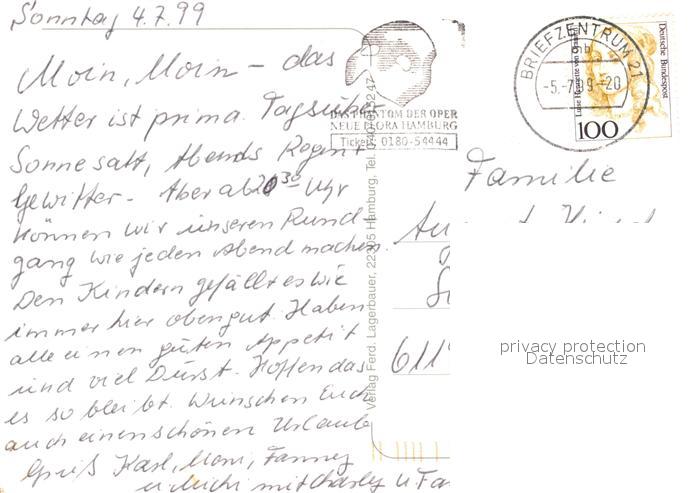 Sonntag 4.7.99
Moin, Moin - das
Wetter ist prima. Tagsüber
Sonne satt, Abends Regen +
Gewitter - Aber ab 20 30 Uhr
können wir unseren Rund-
gang wie jeden Abend machen.
Den Kindern gefällt es wie
immer hier oben gut. Haben
alle einen guten Appetit
und viel Durst. Hoffen das
es so bleibt. Wünschen Euch
auch einen schönen Urlaub
Gruß Karl, Moni, Fanny
u Michi mit Charly u
DAS PHANTOM DER OPER
NEUE FLORA HAMBURG
Tickets 0180-54444
Verlag Ferd. Lagerbauer, 22335 Hamburg, Tel.
BRIEFZENTRUM 21
mb
-5.-7. 9-20
Luise Henriette von Oranien
Deutsche Bundespost
100
Familie
611
privacy protection
Datenschutz